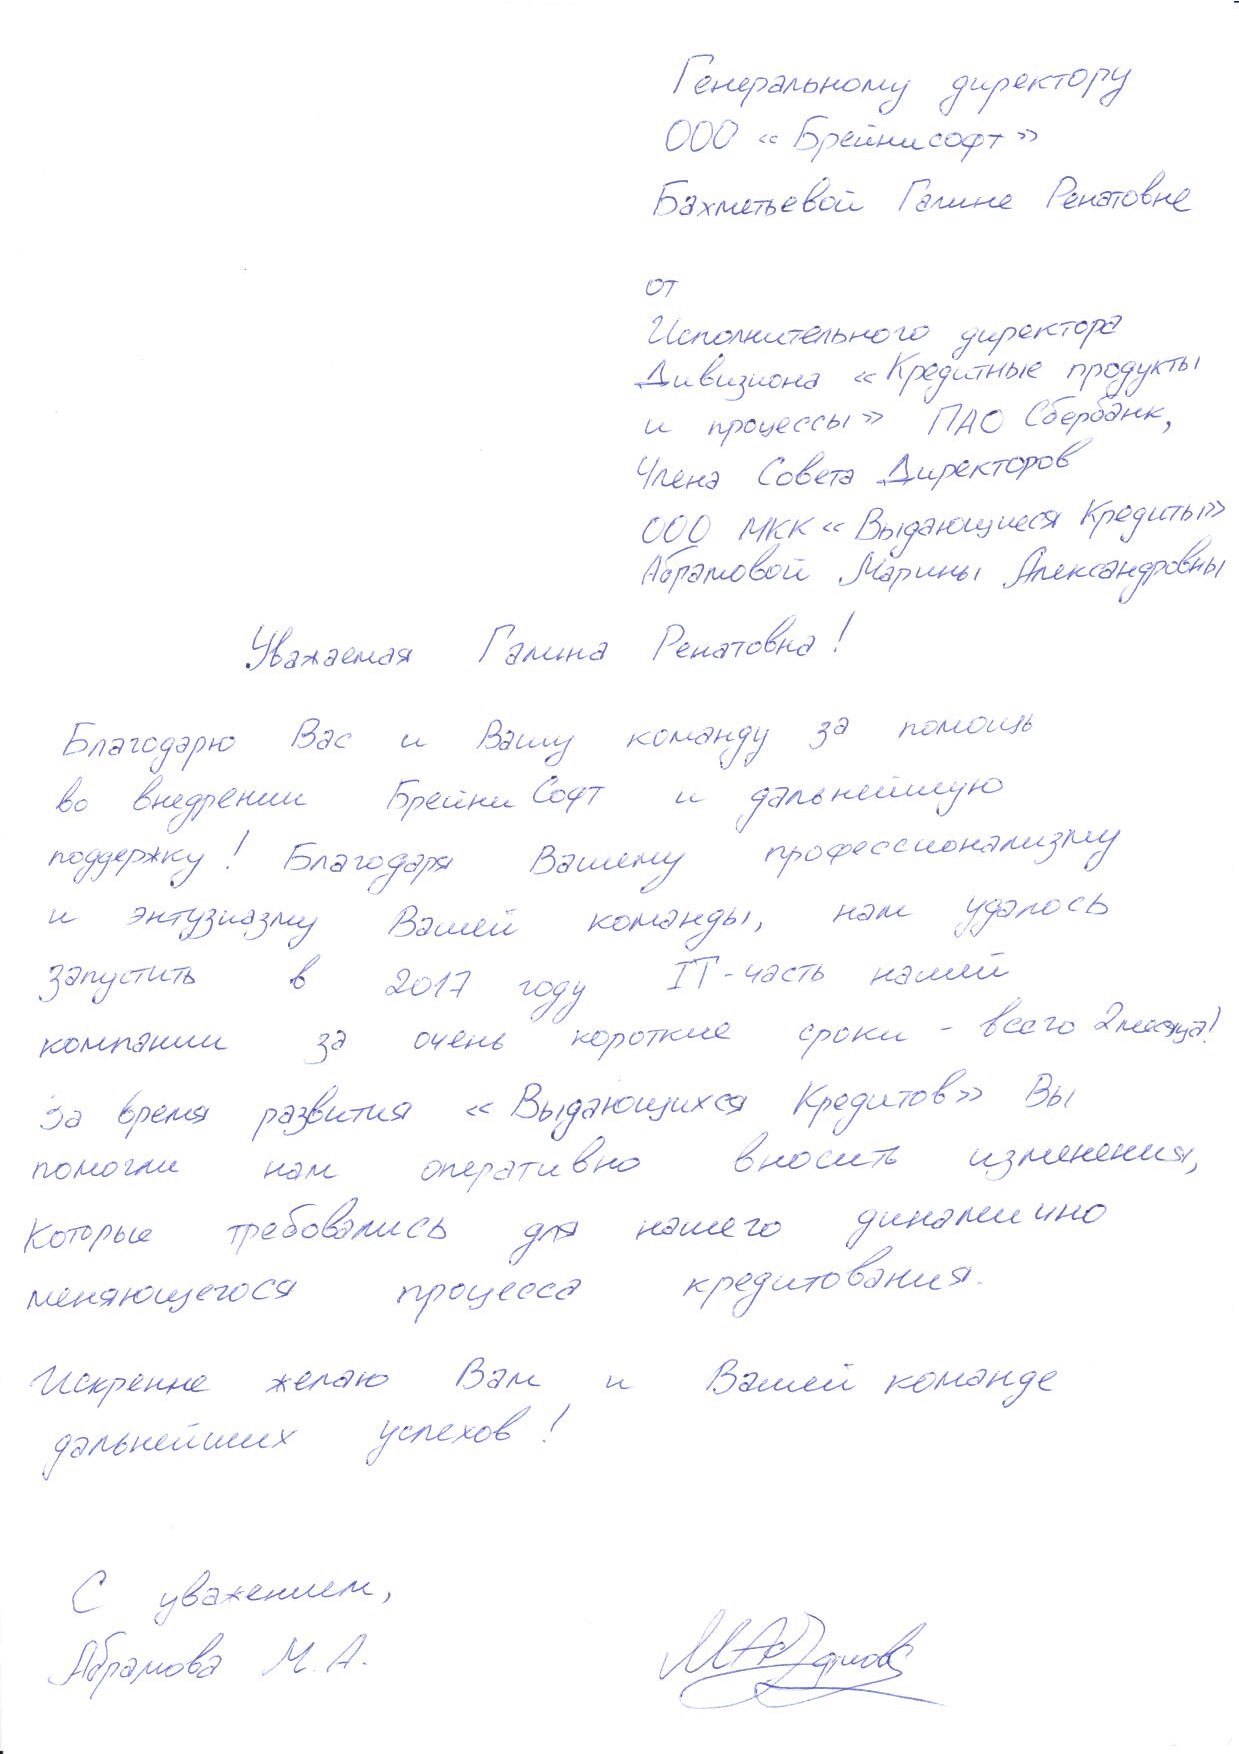 Генеральному директору
ООО «Брейнисофт»
Бахметьевой Галине Ренатовне
от
Исполнительного директора
Дивизиона «Кредитные продукты
и процессы» ПАО Сбербанк,
Члена Совета Директоров
ООО МКК «Выдающиеся Кредиты»
Абрамовой Марины Александровны
Уважаемая Галина Ренатовна!
Благодарю Вас и Вашу команду за помощь
во внедрении Брейни Софт и дальнейшую
поддержку! Благодаря Вашему профессионализму
и энтузиазму Вашей команды, нам удалось
запустить в 2017 году IT-часть нашей
компании за очень короткие сроки - всего 2 месяца!
За время развития «Выдающихся Кредитов» Вы
помогли нам оперативно вносить изменения,
которые требовались для нашего динамично
меняющегося процесса кредитования.
Искренне желаю Вам и Вашей команде
дальнейших успехов!
С уважением,
Абрамова М.А.